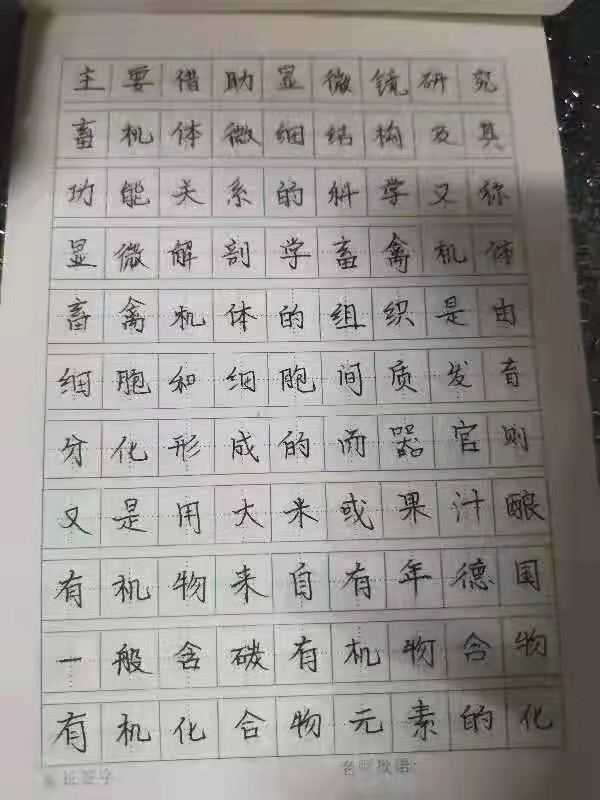 主要借助显微镜研究
畜机体微细结构及其
功能关系的科学又称
显微解剖学畜禽机体
畜禽机体的组织是由
细胞和细胞间质发育
分化形成的而器官则
又是用大米或果汁酿
有机物来自有年德国
一般含碳有机物含物
有机化合物元素的化
长签字 老师批语: